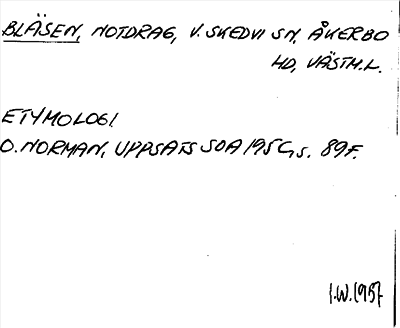 BLÄSEN, NOTDRAG, V. SKEDVI SN, ÅKERBO
HD, VÄSTM.L.
ETYMOLOGI
O. NORMAN, UPPSATS SOA 195 S. 89F.
I.W. 1957